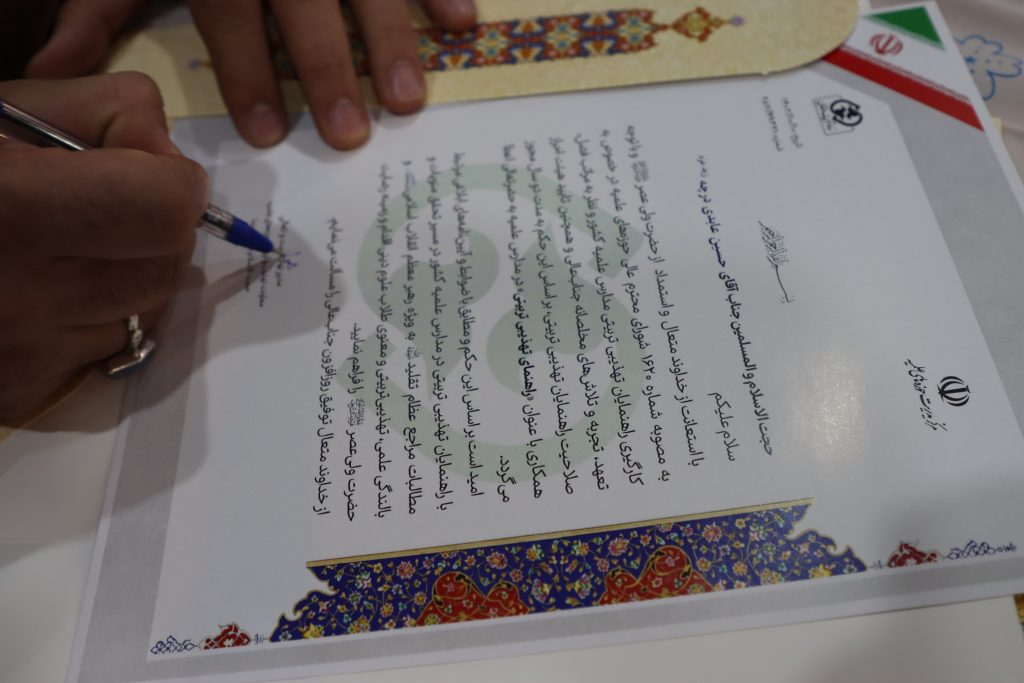 مرکز مدیریت حوزه‌های علمیه
حجت الاسلام والمسلمین جناب آقای حسین عابدی درجه
سلام علیکم
با استعانت از خداوند متعال و استمداد از حضرت ولی عصر و با توجه
به مصوبه شماره ۱۶۲۰ شورای محترم عالی حوزه‌های علمیه در خصوص به
کارگیری راهنمایان تهذیبی تربیتی مدارس علمیه کشور و نظر به مراتب فضل،
تعهد، تجربه و تلاش‌های مخلصانه جنابعالی و همچنین تایید هیئت احراز
صلاحیت راهنمایان تهذیبی تربیتی، بر اساس این حکم به مدت دو سال مجوز
همکاری با عنوان «راهنمای تهذیبی تربیتی» در مدارس علمیه به حضرتعالی اعطا
می‌گردد.
امید است بر اساس این حکم و مطابق با ضوابط و آیین‌نامه‌های ابلاغی مرتبط
با راهنمایان تهذیبی تربیتی در مدارس علمیه کشور در مسیر تحقق منویات و
مطالبات مراجع عظام تقلید به ویژه رهبر معظم انقلاب اسلامی و
بالندگی علمی، تهذیبی تربیتی و معنوی طلاب علوم دینی اقدام و زمینه رضایت
حضرت ولی عصر را فراهم نمایید.
از خداوند متعال توفیق روزافزون جنابعالی را مسألت می‌نمایم.